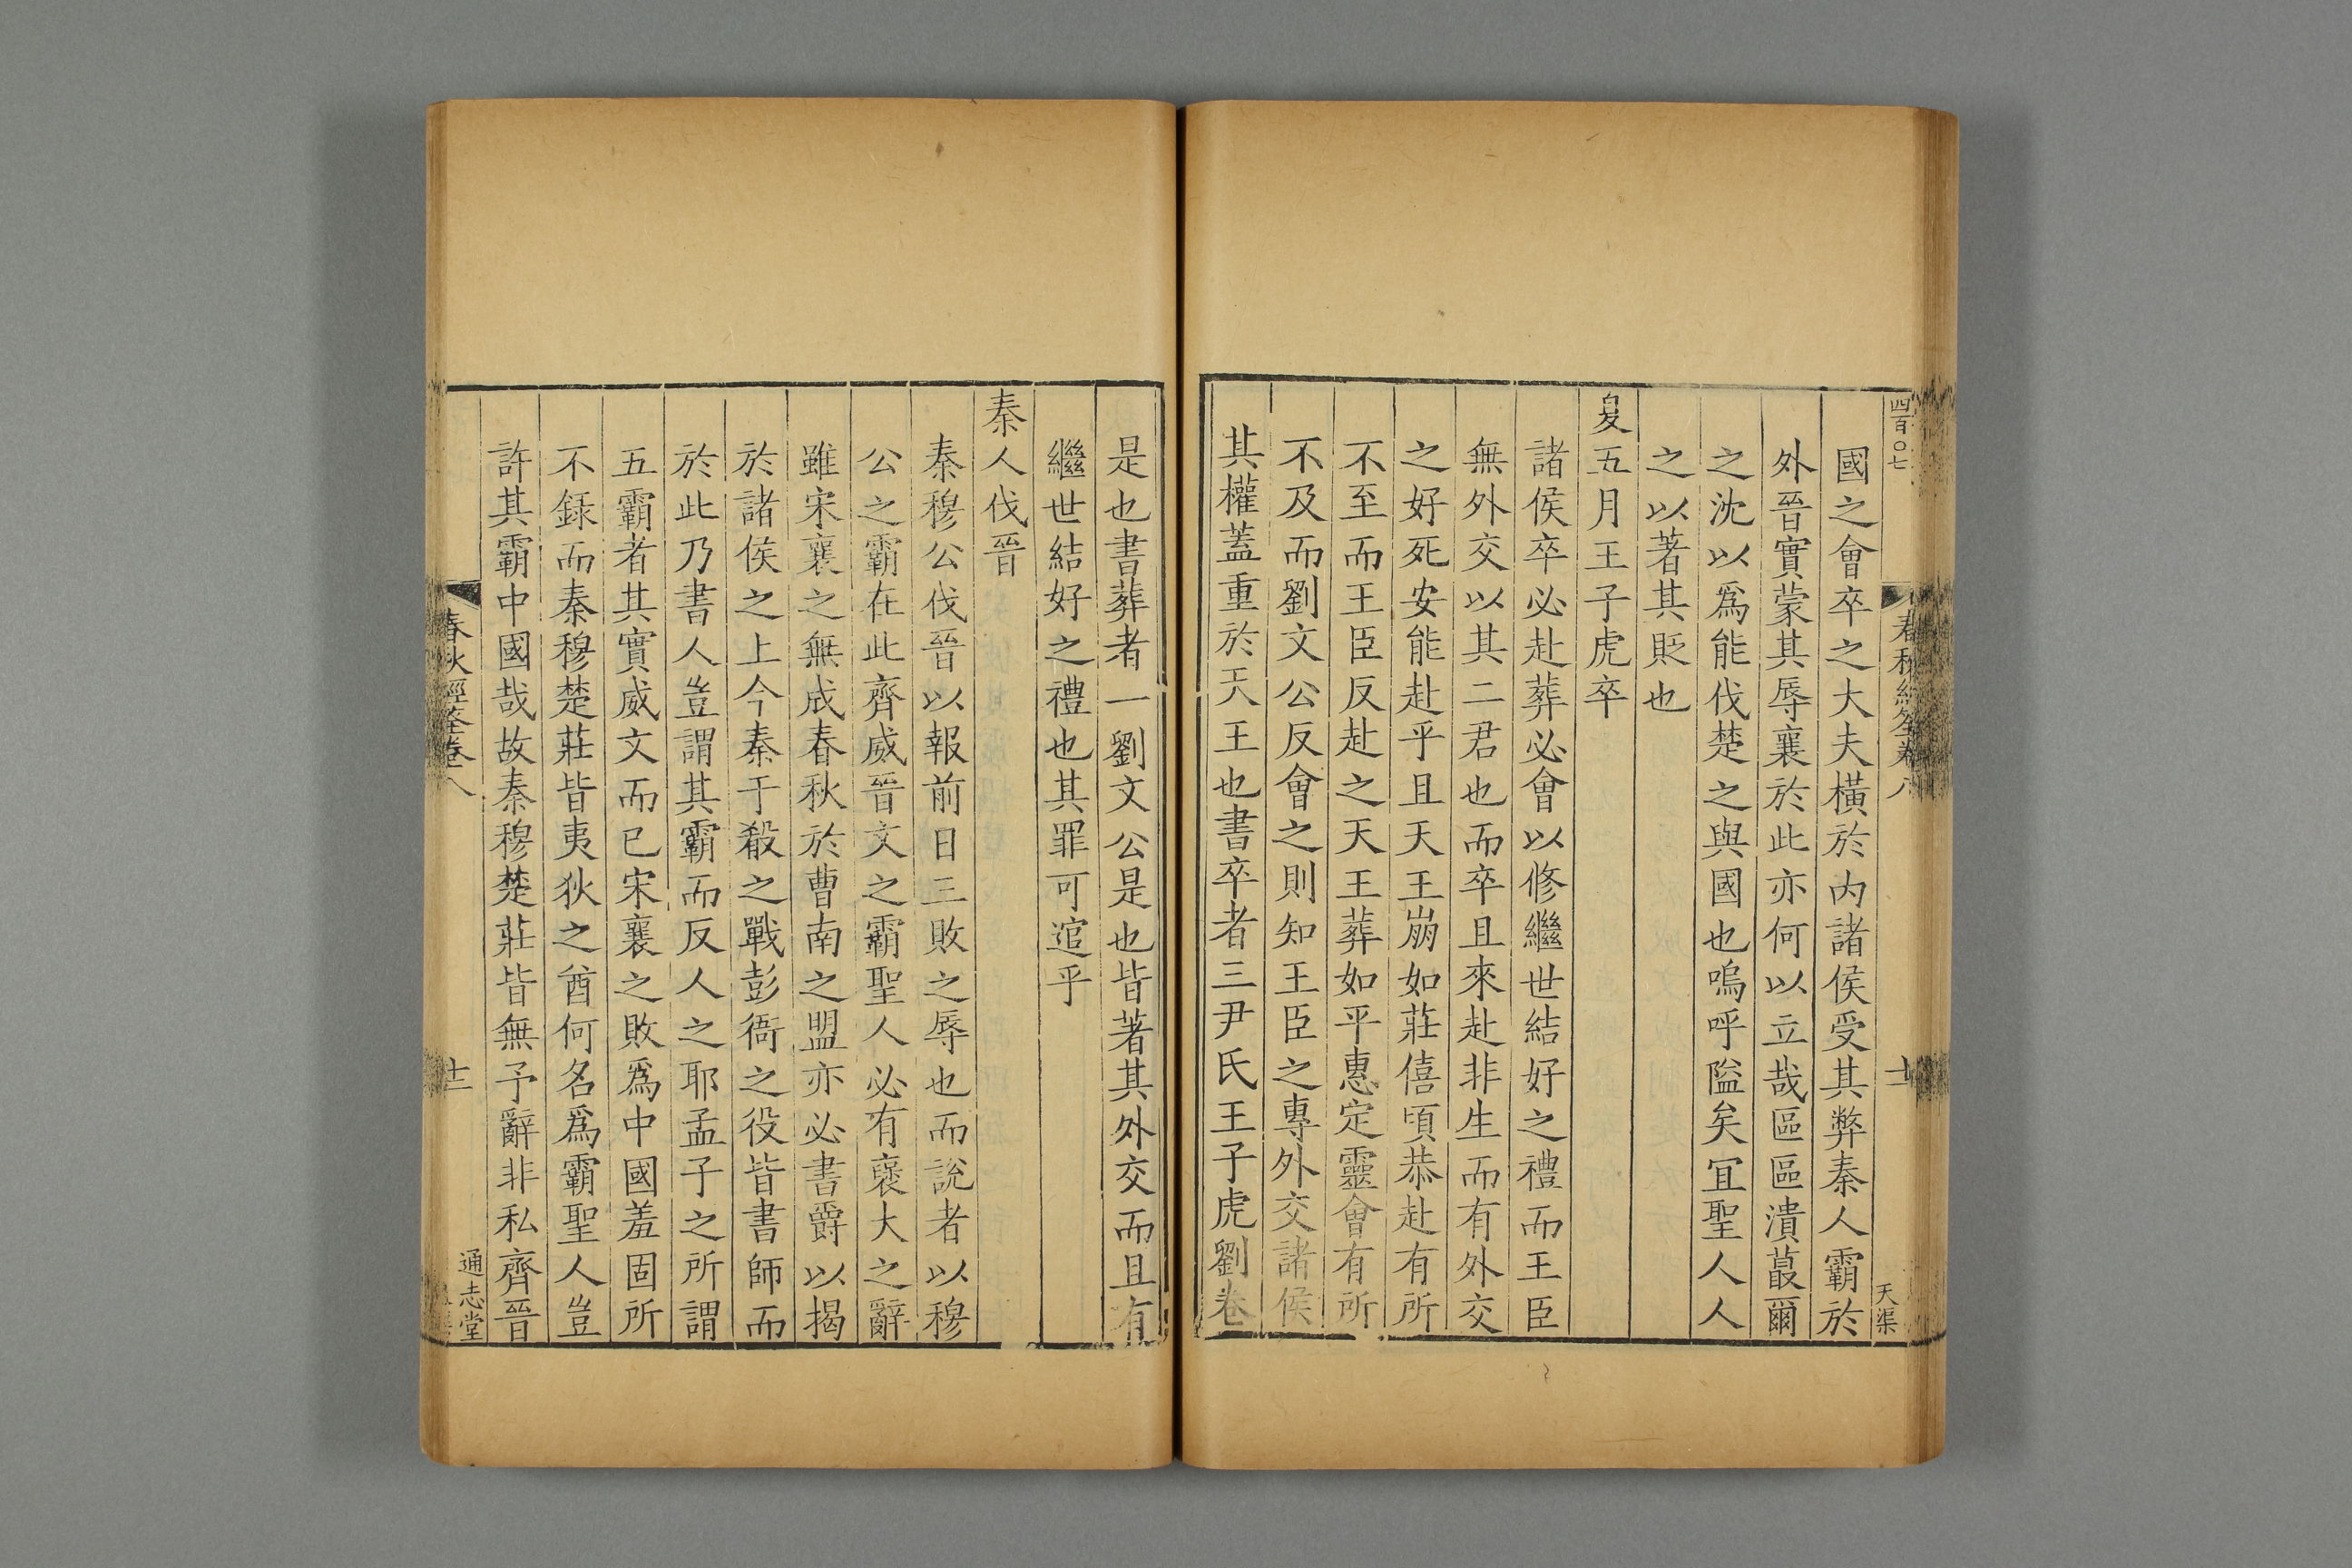 四百〇七
春秋經筌卷八
十一
天渠
國之會卒之大夫橫於內諸侯受其弊秦人霸於
外晉實蒙其辱襄於此亦何以立哉區區潰蕞爾
之沈以爲能伐楚之與國也嗚呼隘矣宜聖人人
之以著其貶也
夏五月王子虎卒
諸侯卒必赴葬必會以修繼世結好之禮而王臣
無外交以其二君也而卒且來赴非生而有外交
之好死安能赴乎且天王崩如莊僖頃恭赴有所
不至而王臣反赴之天王葬如平惠定靈會有所
不及而劉文公反會之則知王臣之專外交諸侯
其權蓋重於天王也書卒者三尹氏王子虎劉卷
是也書葬者一劉文公是也皆著其外交而且有
繼世結好之禮也其罪可逭乎
秦人伐晉
秦穆公伐晉以報前日三敗之辱也而說者以穆
公之霸在此齊威晉文之霸聖人必有襃大之辭
雖宋襄之無成春秋於曹南之盟亦必書爵以揭
於諸侯之上今秦于殽之戰彭衙之役皆書師而
於此乃書人豈謂其霸而反人之耶孟子之所謂
五霸者其實威文而已宋襄之敗爲中國羞固所
不録而秦穆楚莊皆夷狄之酋何名爲霸聖人豈
許其霸中國哉故秦穆楚莊皆無予辭非私齊晉
春秋經筌卷八
十一
通志堂